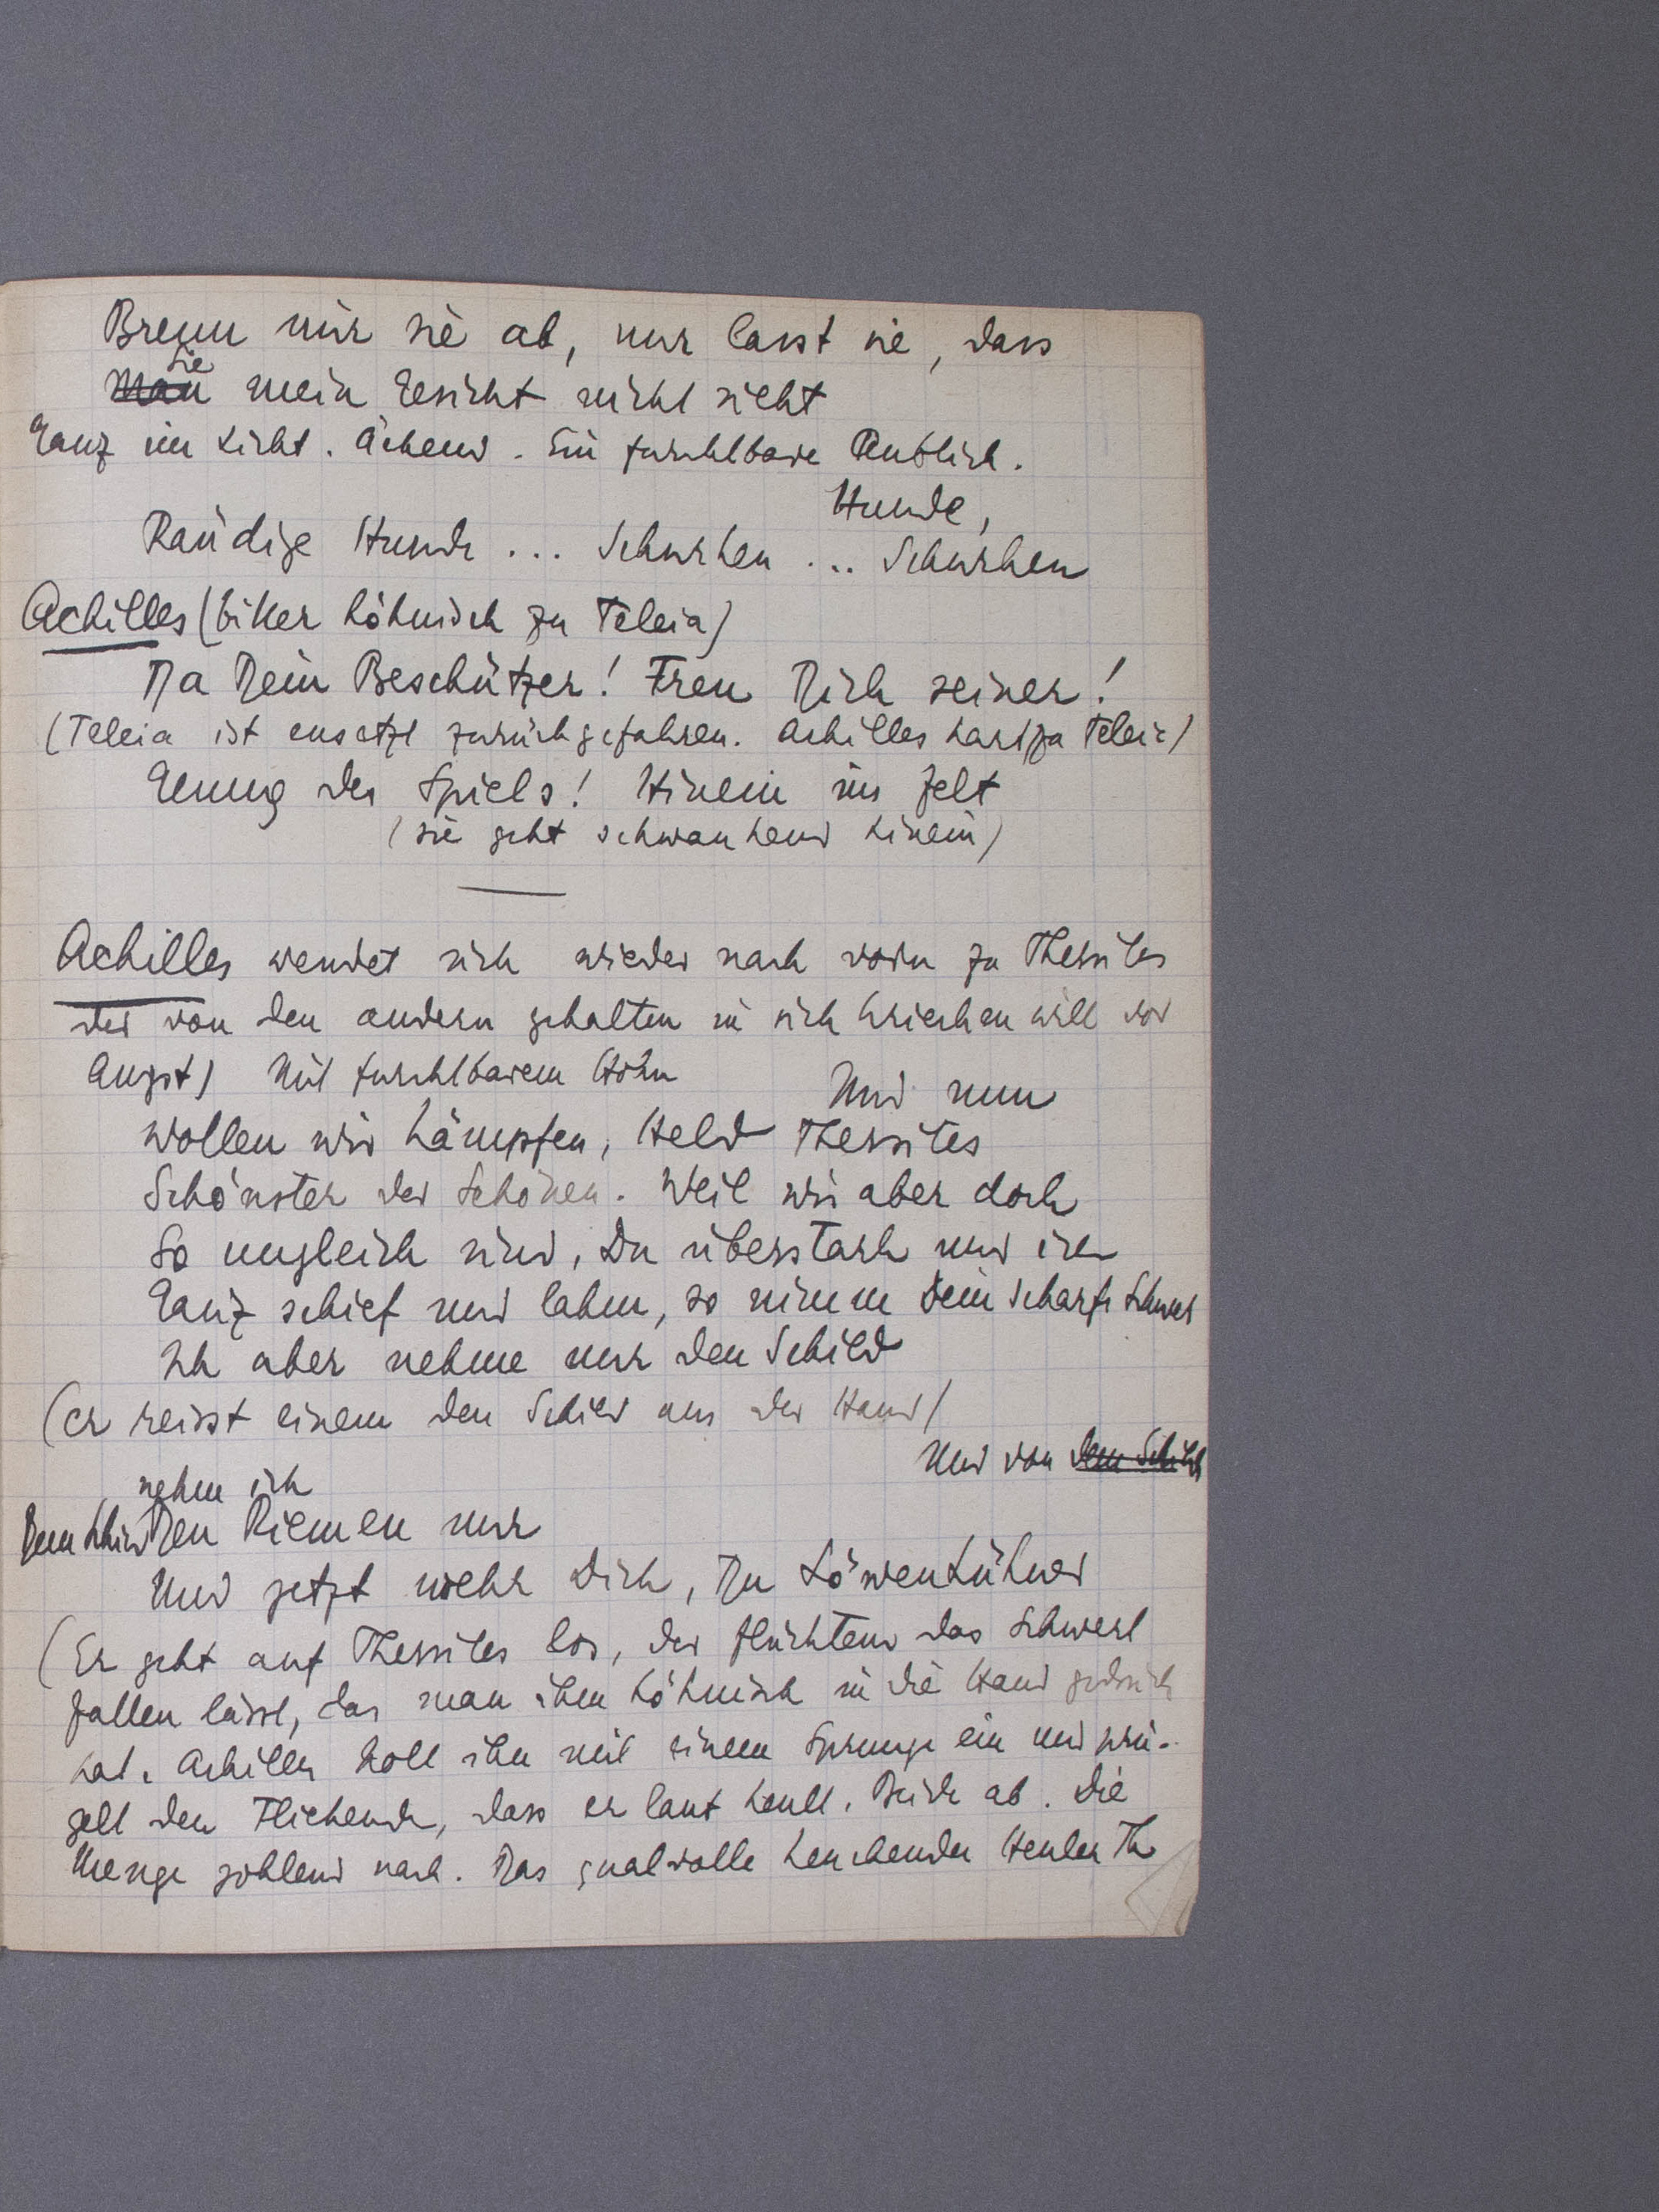 Brenn mir sie ab, nur lasst sie, dass
Sie
Man mein Gesicht nicht sieht
Ganz im Licht. Ächend. Ein furchtbarer Anblick.
Hunde,
Räudige Hunde ... Schurken ... Schurken
Achilles (bitter höhnisch zu Teleia)
Da Dein Beschützer! Freu Dich seiner!
(Teleia ist ensetzt zurückgefahren. Achilles hart zu Teleia)
Genug des Spiels! Hinein ins Zelt
(sie geht schwankend hinein)
Achilles wendet sich wieder nach vorn zu Thersites
der von den andern gehalten in sich kriechen will vor
Angst) Mit furchtbarem Hohn
Und nun
wollen wir kämpfen, Held Thersites
Schönster der Schönen. Weil wir aber doch
So ungleich sind, Du überstark und ich
Ganz schief und lahm, so nimm dein scharfes Schwert
Ich aber nehme nur den Schild
(er reisst einem den Schild aus der Hand)
Und von dem Schild
nehm ich
Dem Schild Den Riemen nur
Und jetzt wehr Dich, Du Löwenkühner
(Er geht auf Thersites los, der flüchtend das Schwert
fallen lässt, das man ihm höhnisch in die Hand gedrückt
hat. Achilles holt ihn mit einem Sprunge ein und prü-
gelt den Fliehenden, dass er laut heult. Beide ab. Die
Menge johlend nach. Das qualvolle keuchende Heulen Th